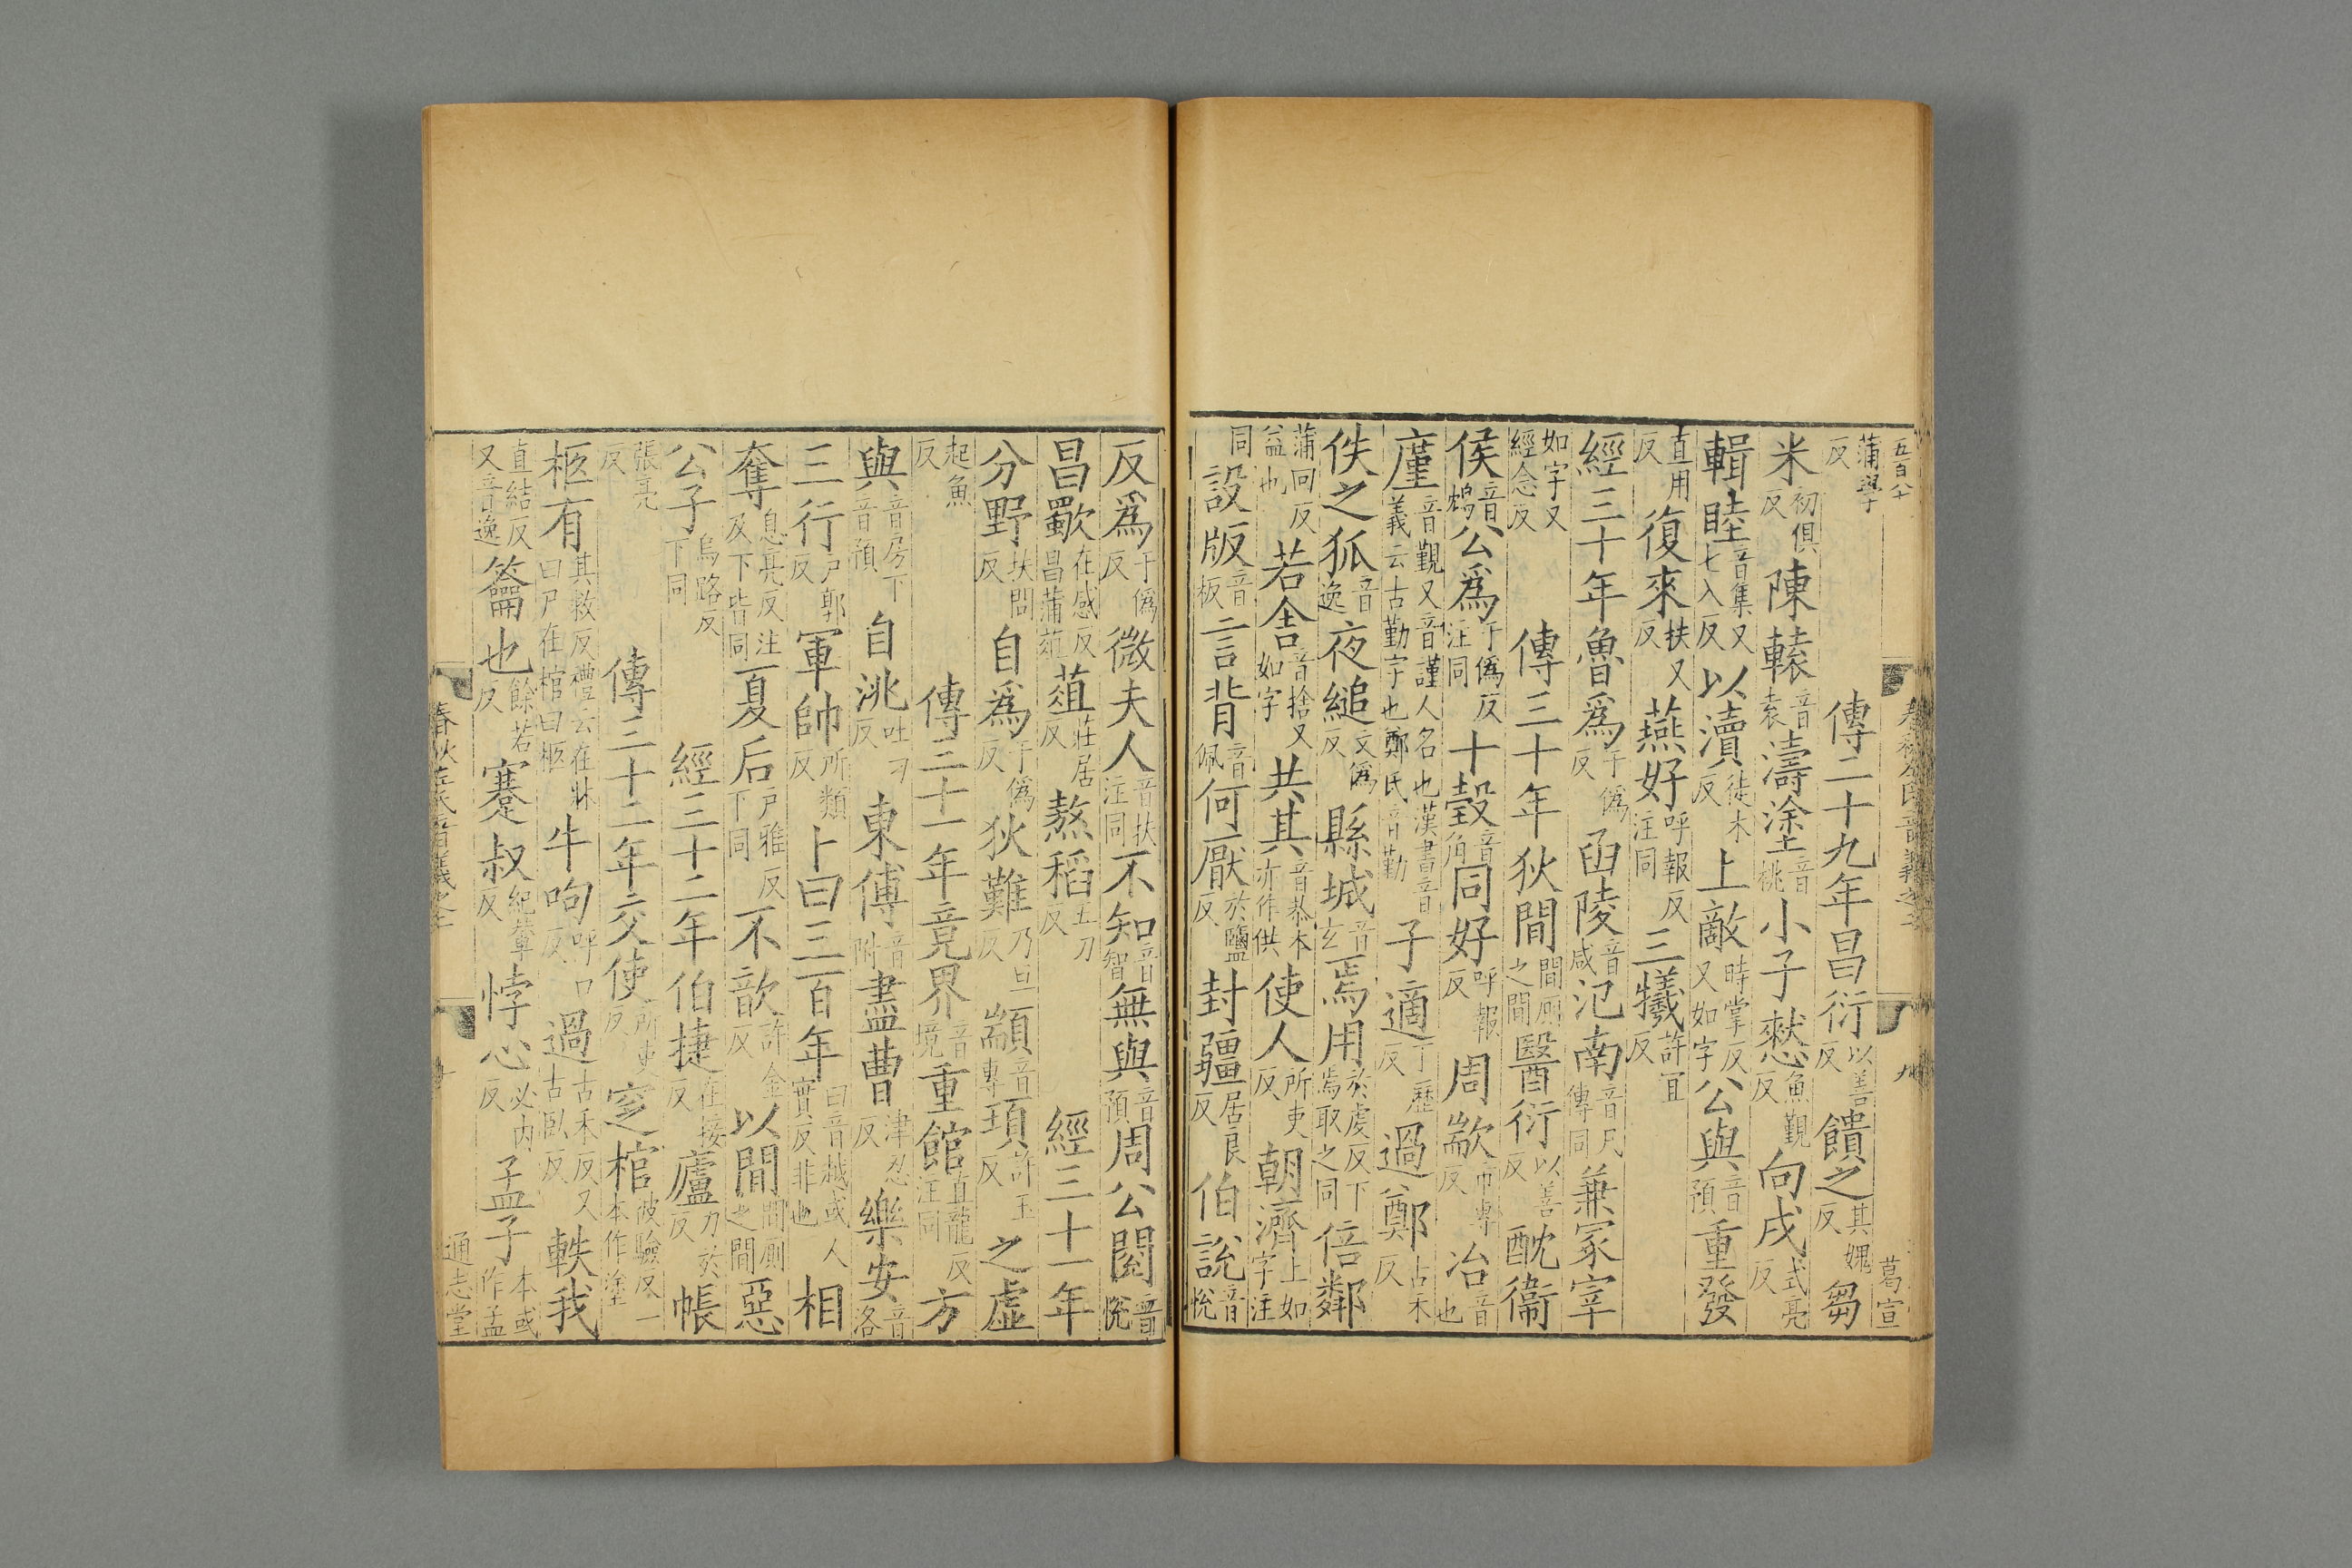 五百八十
葛宣
蒲學反 傳二十九年昌衍以善反饋之其媿反芻
米初俱反陳轅音袁濤塗音桃小子憖魚覲反向戌式亮反
輯睦音集又七入反以瀆徒木反上敵時掌反又如字公與音預重發
直用反復來扶又反燕好呼報反注同三犧許宜反
經三十年魯爲于僞反函陵音咸氾南音凡傳同兼冢宰
如字又經念反 傳三十年狄間間厠之間醫衍以善反酖衞
侯音鴆公爲于僞反注同十瑴音角同好呼報反周歂市專反冶音也
廑音覲又音謹人名也漢書音義云古勤字也鄭氏音勤子適丁歷反過鄭古禾反
佚之狐音逸夜縋丈僞反縣城音玄焉用於虔反下焉取之同倍鄰
蒲回反益也若舍音捨又如字共其音恭本亦作供使人所吏反朝濟上如字注
同設版音板言背音佩何厭於鹽反封疆居良反伯說音悅
反爲于僞反微夫人音扶注同不知音智無與音預周公閱音悅
昌歜在感反昌蒲葅葅莊居反熬稻五刀反 經三十一年
分野扶問反自爲于僞反狄難乃旦反顓音專頊許玉反之虛
起魚反 傳三十一年竟界音境重館直龍反注同方
與音房下音預自洮吐刀反東傅音附盡曹津忍反樂安音洛
三行戶郭反軍帥所類反卜曰三百年曰音越或人實反非也相
奪息亮反注及下皆同夏后戶雅反下同不歆許金反以間間厠之間惡
公子烏路反下同 經三十二年伯捷在接反廬力於反帳
張亮反 傳三十二年交使所吏反窆棺彼驗反一本作塗
柩有其救反禮云在牀曰尸在棺曰柩牛呴呼口反過古禾反又古臥反軼我
直結反又音逸籥也餘若反蹇叔紀輦反悖心必內反孟子本或作孟
春秋左氏音義之一
九
通志堂